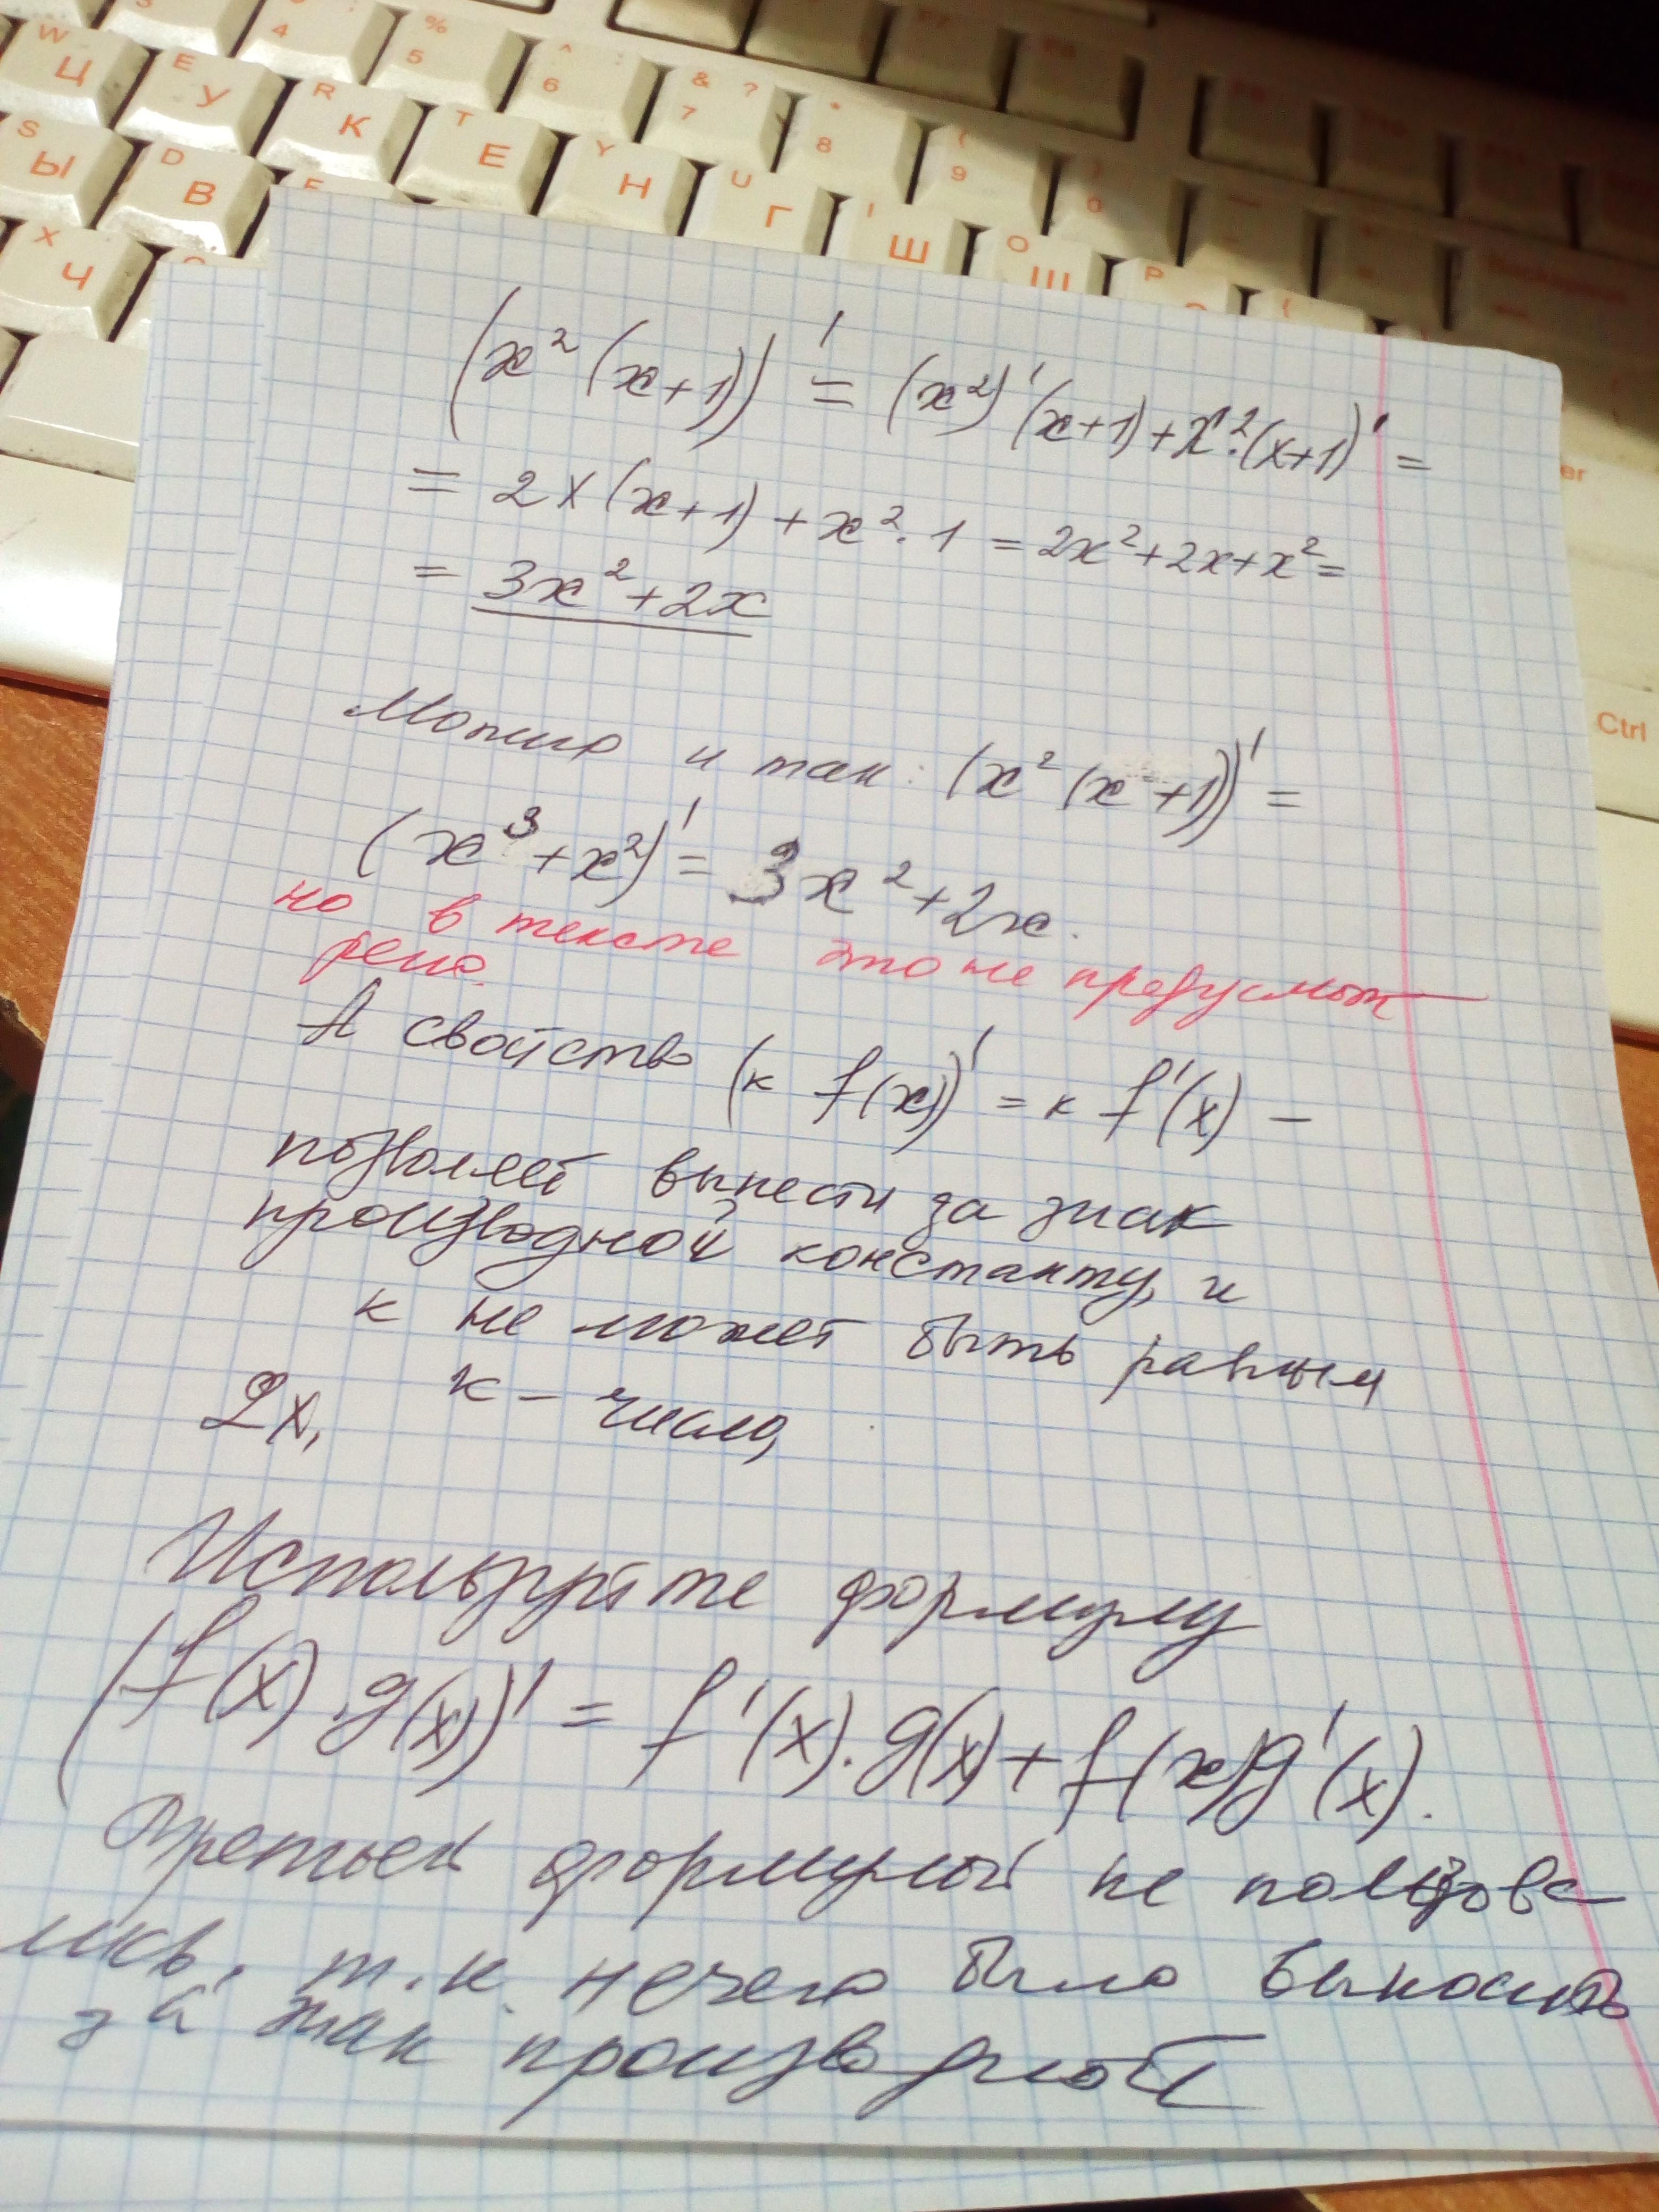 W Ц E У R К 4 % 5 T Е ^ 6 Y Н & 7 ? U Г * 8 I Ш ( 9 O Щ ) 0 P
S Ы D В F
X Ч
Ctrl
(x² (x+1))' = (x²)' (x+1) + x²·(x+1)' =
= 2x (x+1) + x²·1 = 2x²+2x+x² =
= 3x²+2x
Можно и так: (x² (x+1))' =
(x³+x²)' = 3x²+2x.
но в тексте это не предусмот
рено.
А свойство (к f(x))' = к f'(x) –
позволяет вынести за знак
производной константу, и
к не может быть равным
2x, к – число,
Используйте формулу
(f(x)·g(x))' = f'(x)·g(x)+f(x)g'(x).
Третьей формулой не пользова
лись, т.к. нечего было выносить
за знак производной